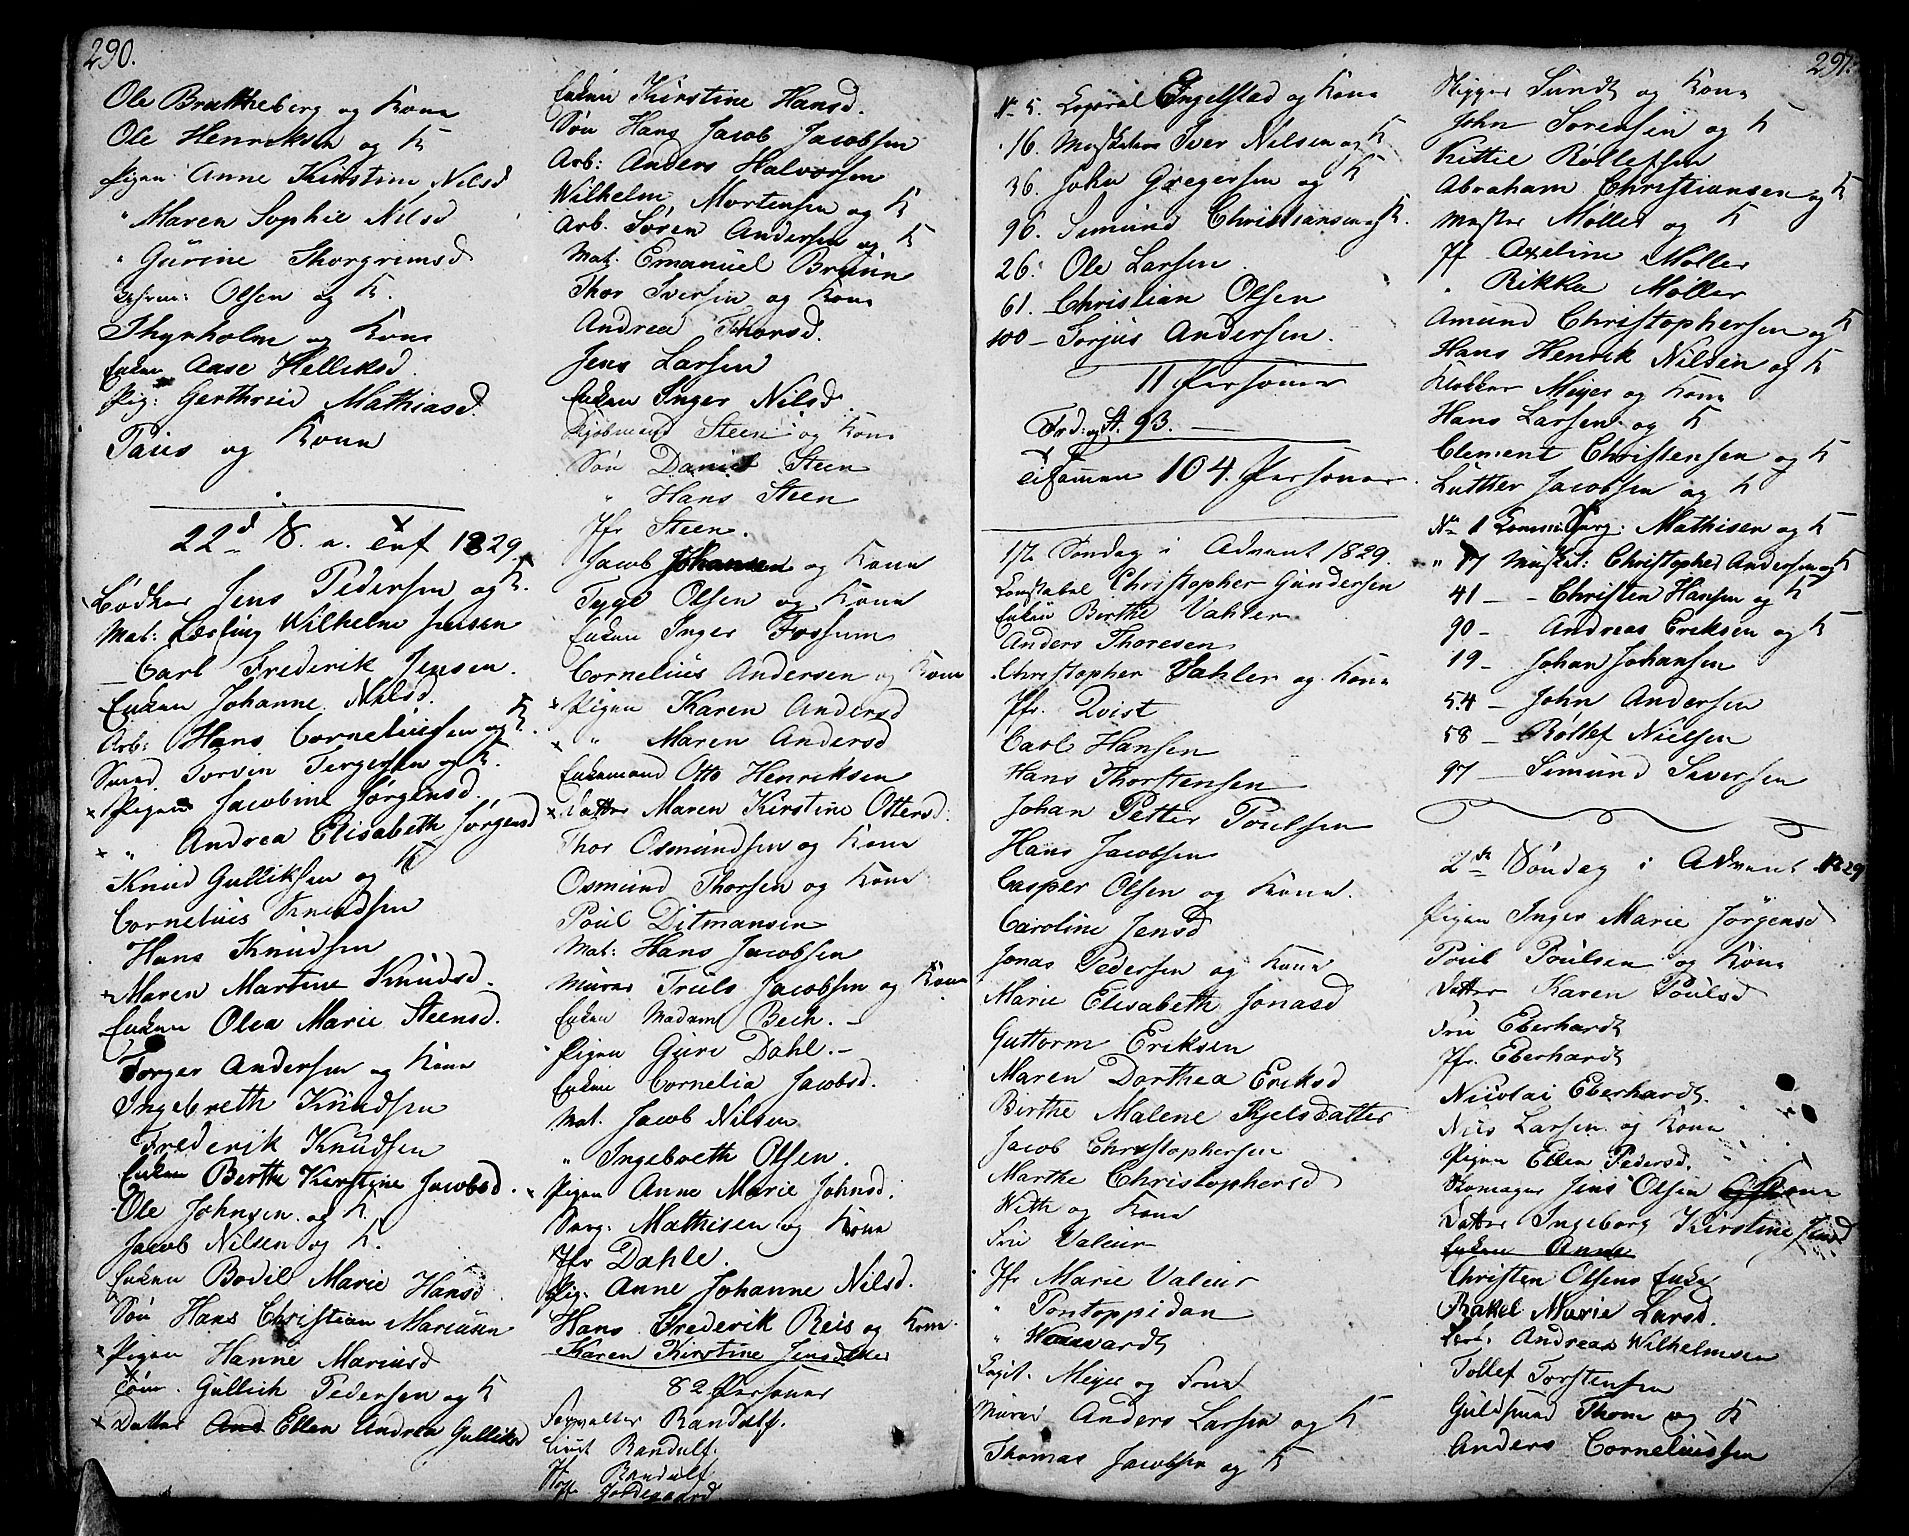 290.
Ole Brattheberg og Kone
Ole Henriksen og K
Pigen Anne Kirstine Nilsd
" Maren Sophie Nilsd
" Gurine Thorgrimsd
Olsen og K.
Thyrholm og Kone
Enken Aase Helliksd.
Pig: Gerthrud Mathiasd
Paus og Kone
22d S. a. Trf 1829.
Bødker Jens Pedersen og K.
Mat: Lærling Wilhelm Jensen
— Carl Frederik Jensen.
Enken Johanne Nilsd.
Arb: Hans Corneliussen og K.
Smed Torvin Tergesen og K.
× Pigen Jacobine Jørgensd.
× " Andrea Elisabeth Jørgensd
Knud Gulliksen og K
Cornelius Knudsen
Hans Knudsen
× Maren Martine Knudsd.
Enken Olea Marie Steensd.
Torger Andersen og Kone
Ingebreth Knudsen
Frederik Knudsen
Enken Berthe Kirstine Jacobsd.
Ole Johnsen og K.
Jacob Nilsen og K.
Enken Bodil Marie Hansd.
Søn Hans Christian Mariusen
× Pigen Hanne Mariusd
Tøm. Gullich Pedersen og K
× Datter And Ellen Andrea Gulliksd
Enken Kirstine Hansd.
Søn Hans Jacob Jacobsen
Arb: Anders Halvorsen
Wilhelm Mortensen og K
Arb. Søren Andersen og K
Mat: Emanuel Bruun
Thor Iversen og Kone
Andrea Thorsd.
Jens Larsen
Enken Inger Nilsd.
Kjøbmand Steen og Kone
Søn Daniel Steen
" Hans Steen
Jfr Steen.
Jacob Johansen og Kone
Tyge Olsen og Kone
Enken Inger Fossum
Cornelius Andersen og Kone
× Pigen Karen Andersd
× " Maren Andersd
Enkemand Otto Henriksen
× Datter Maren Kirstine Ottersd.
Thor Osmundsen og Kone
Osmund Thorsen og Kone
Poul Ditmansen
Mat: Hans Jacobsen
Murer Truls Jacobsen og Kone
Enken Madam Bech. —
Pigen Guri Dahl. —
Enken Cornelia Jacobsd.
Mat. Jacob Nilsen
" Ingebreth Olsen.
× Pigen Anne Marie Johnsd.
Serg. Mathisen og Kone
Jfr Dahle.
Pig. Anne Johanne Nilsd.
Hans Frederik Reis og Kone.
Karen Kirstine Jensdatter
82 Personer
Forvalter Randulf.
Lieut Randulf.
Jfr Randulf
Jfr Jordegaard
291.
No 5. Koporal Engelstad og Kone
16. Musketeer Iver Nilsen og K
36. John Gregersen og K
96. Simund Christiansen og K.
26. Ole Larsen
61. Christian Olsen
100 — Torjus Andersen.
11 Personer
Ord. og St. 93. —
Tilsamen 104. Personer
1ste Søndag i Advent 1829.
Konstabel Christopher Gundersen
Enken Berthe Vahler
Anders Thoresen
Christopher Vahler og Kone
Jfr. Qvist
Carl Hansen
Hans Thorstensen
Johan Petter Poulsen
Hans Jacobsen
Casper Olsen og Kone.
Caroline Jensd
Jonas Pedersen og Kone
Marie Elisabeth Jonasd
Guttorm Eriksen
Maren Dorthea Eriksd
Birthe Malene Kjelsdatter
Jacob Christophersen
Marthe Christophersd
With og Kone
Fru Valeur
Jfr Marie Valeur
" Pontoppidan
Capit. Meyer og Frue
Murer Anders Larsen og K
Thomas Jacobsen og K
Skipper Sundt og Kone
John Sørensen og K
Kittil Rollefsen
Abraham Christiansen og K
Muster Møller og K
Jf Axeline Møller
" Rikka Møller
Amund Christophersen og K
Hans Henrik Nilsen og K
Klokker Meyer og Kone
Hans Larsen og K
Clement Christensen og K
Lutther Jacobsen og K
No 1 Komm: Serg: Mathisen og K
" 17 Musket: Christopher Andersen og K
41 — - Christen Hansen og K
90 — Andreas Eriksen og K
19 — Johan Johansen
54 — John Andersen
58 — Rollef Nielsen
97 — Simund Siversen
2den Søndag i Advent 1829
Pigen Inger Marie Jørgensd
Poul Poulsen og Kone
Datter Karen Poulsd
Fru Eberhardt
Jfr. Eberhardt
Nicolai Eberhardt
Niis Larsen og Kone
Pigen Ellen Pedersd.
Skomager Jens Olsen og Kone
Datter Ingeborg Kirstine Jensd
Enken Anne
Christen Olsens Enke
Rakel Marie Larsd.
Andreas Wilhelmsen
Tollef Torstensen
Guldsmed Thom og K
Anders Corneliussen